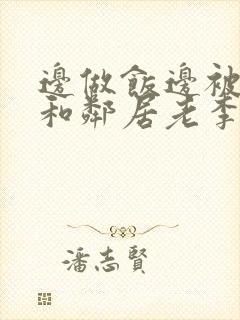 邊做飯邊被
和鄰居老李
潘志賢